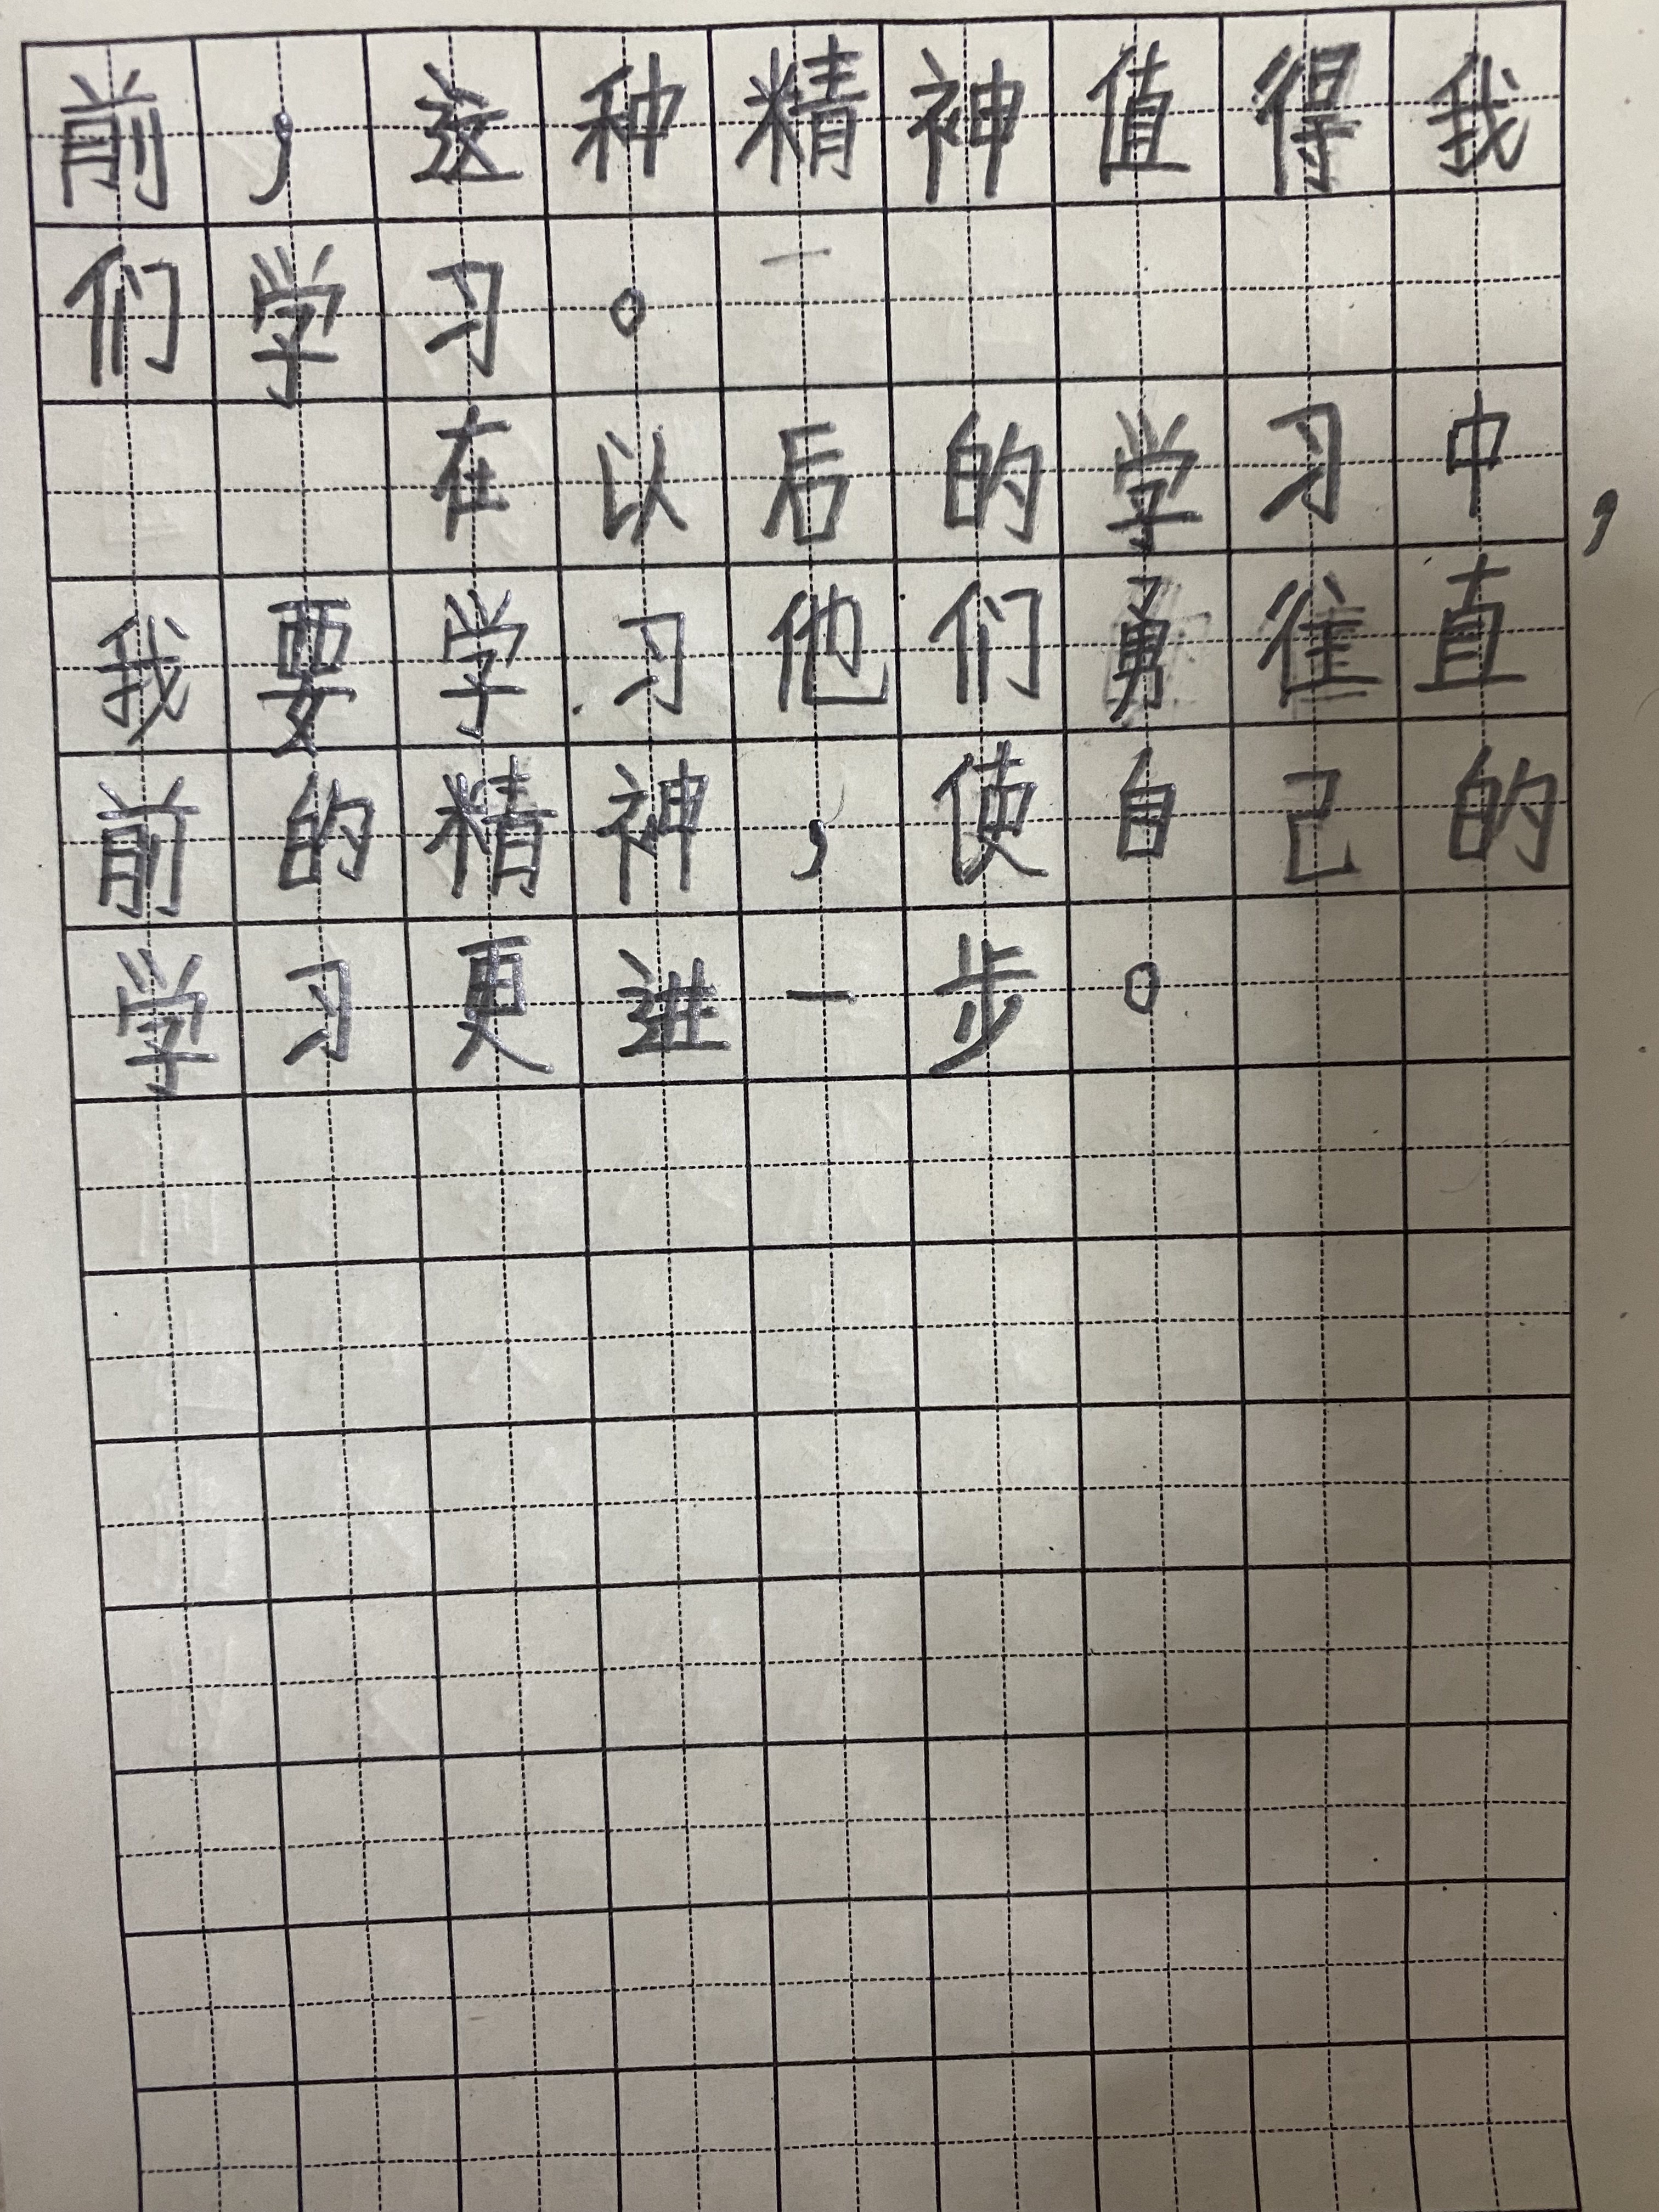 前，这种精神值得我
们学习。
在以后的学习中，
我要学习他们勇往直
前的精神，使自己的
学习更进一步。